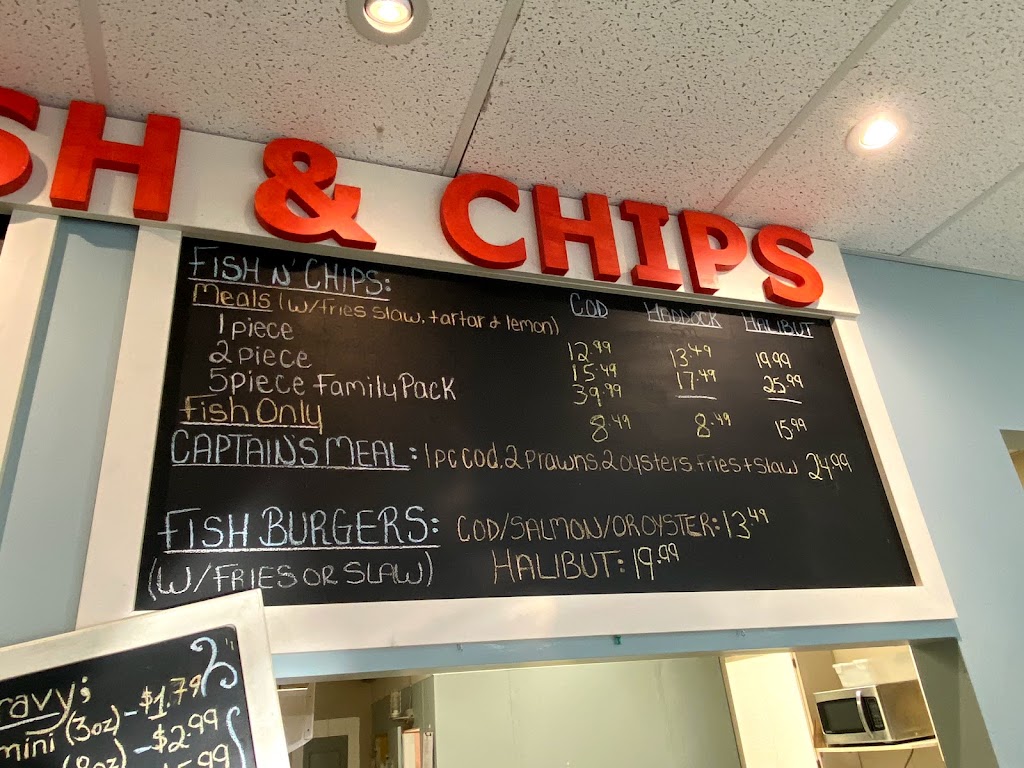 SH & CHIPS
FISH N' CHIPS:
Meals (w/fries slaw, tartar & lemon) COD HADDOCK HALIBUT
1 piece 12.99 13.49 19.99
2 piece 15.49 17.49 25.99
5 piece Family Pack 39.99 — —
Fish Only 8.49 8.49 15.99
CAPTAIN'S MEAL: 1 pc cod, 2 prawns, 2 oysters fries + slaw 24.99
FISH BURGERS: COD/SALMON/OR OYSTER: 13.49
(W/FRIES OR SLAW) HALIBUT: 19.99
ravy;
mini (3oz) - $1.79
(8oz) - $2.99
.99